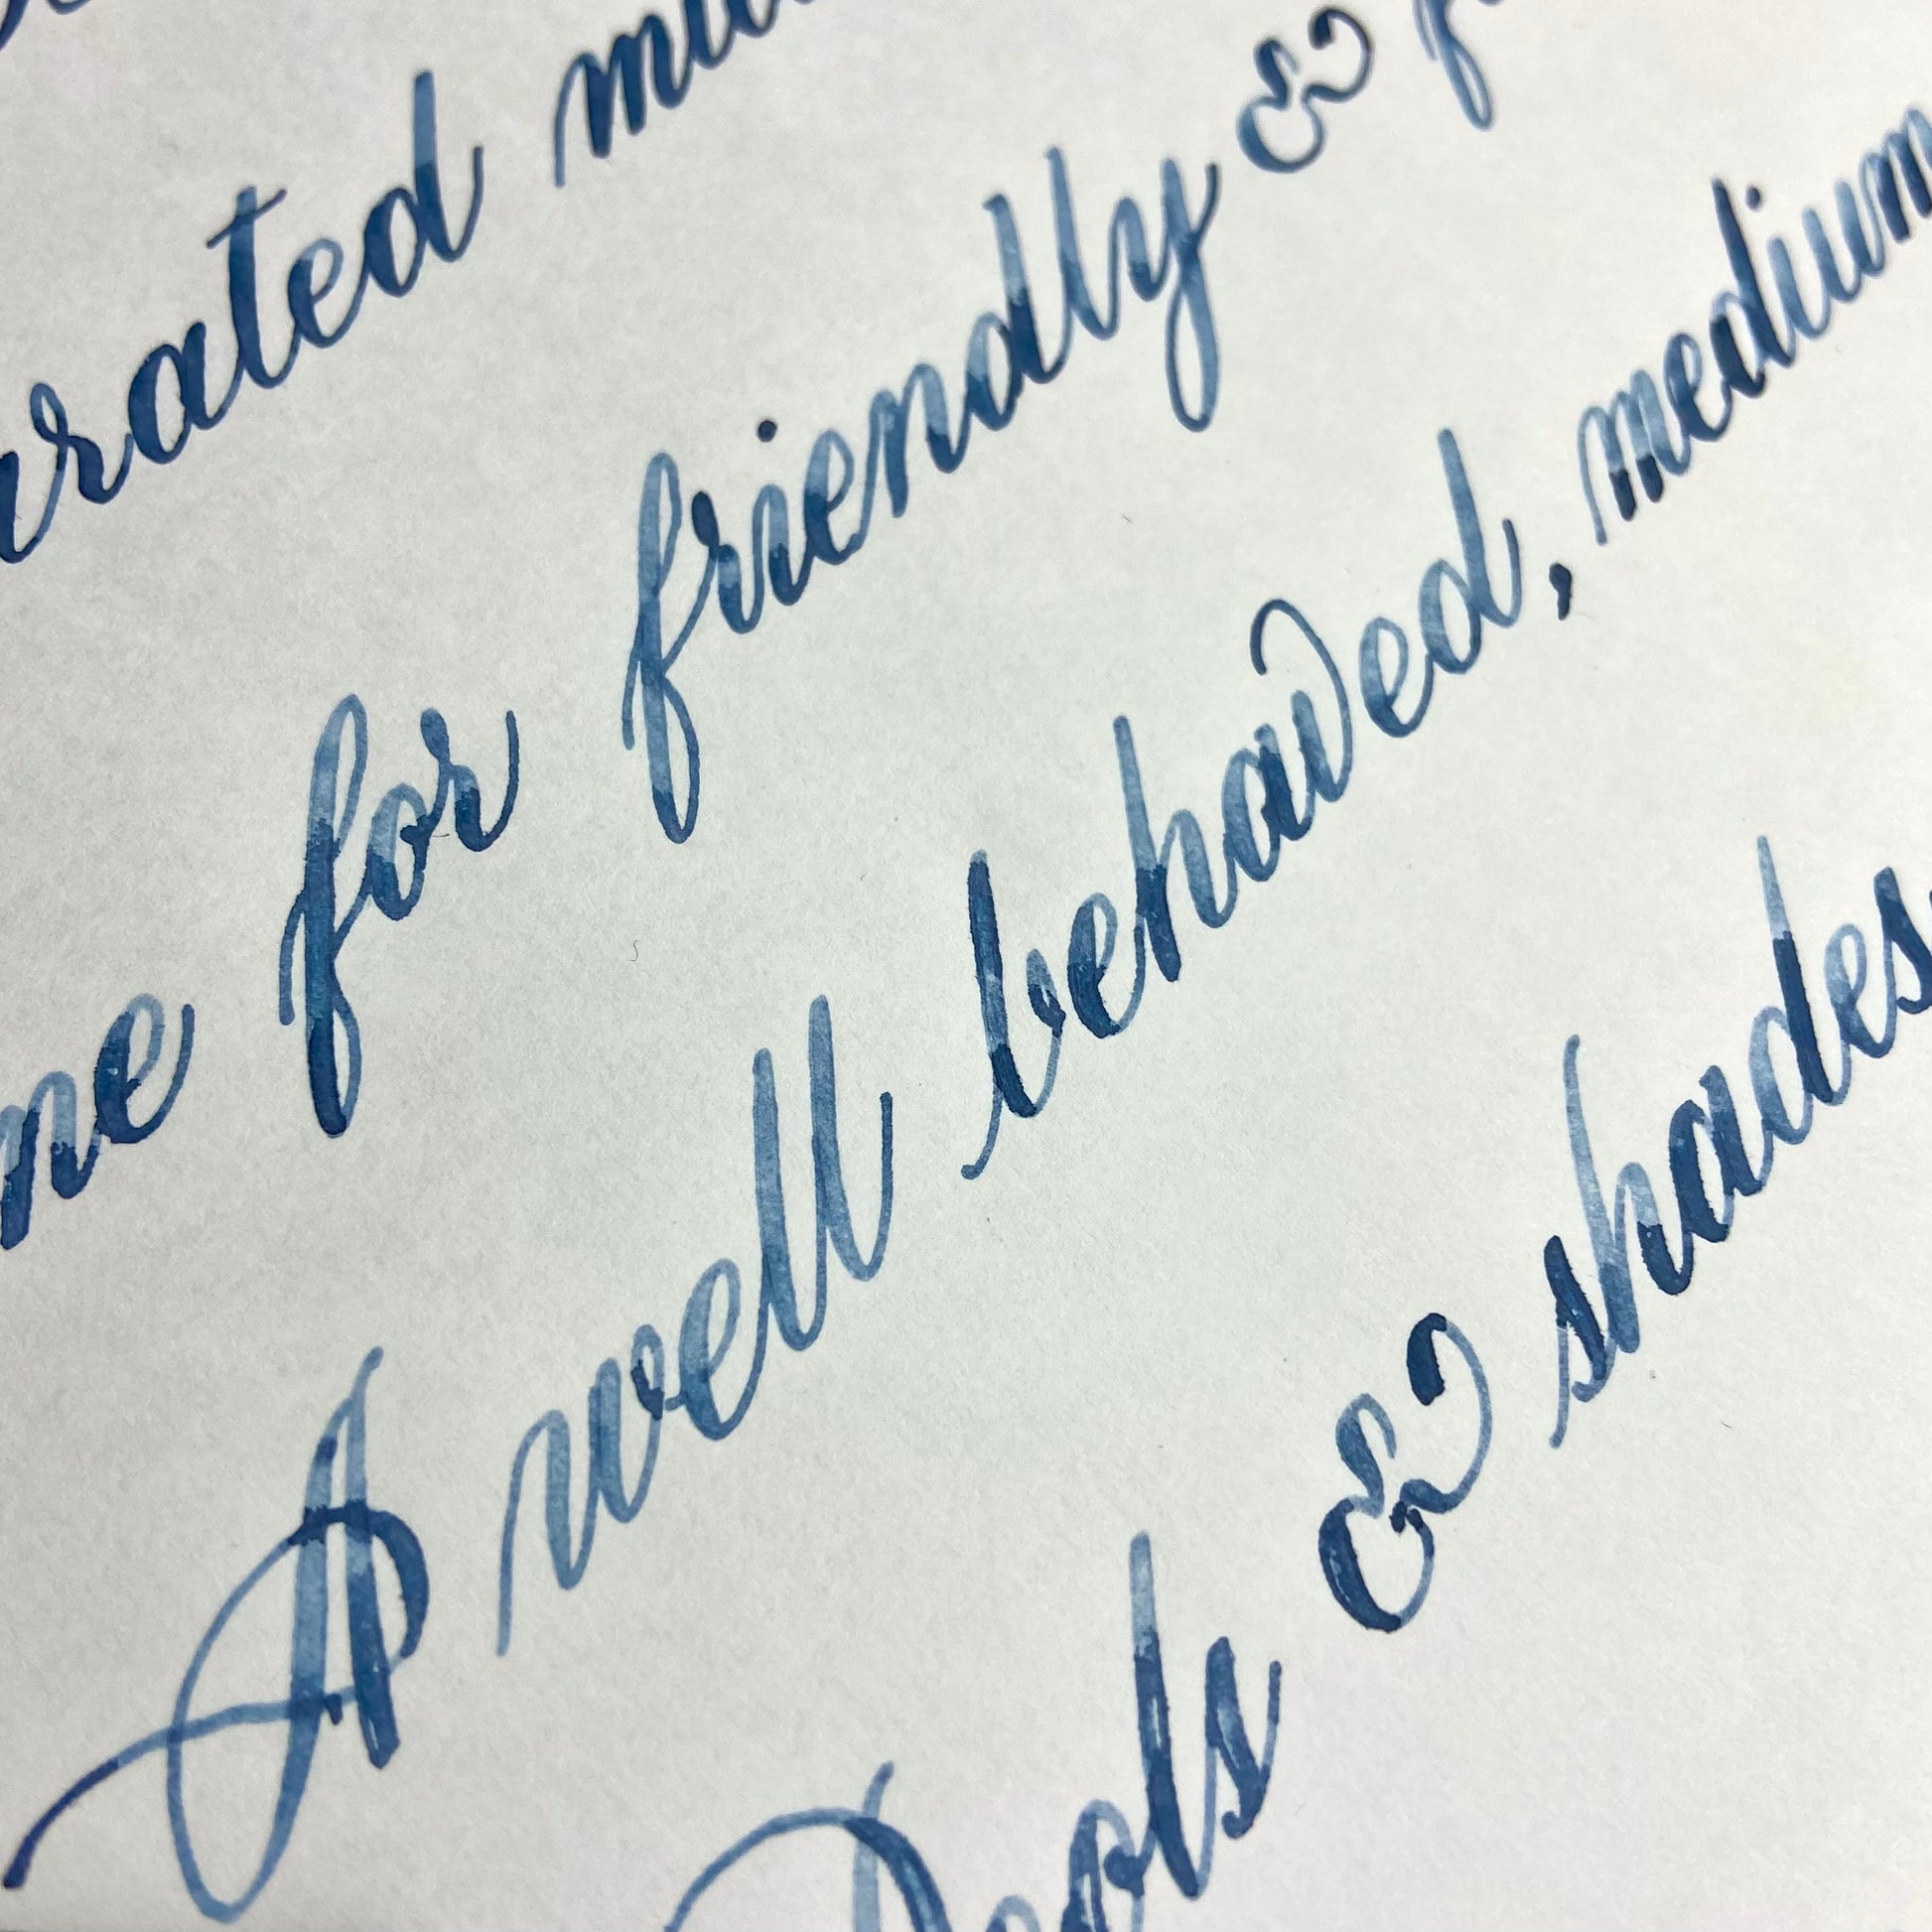 rated mu
ne for friendly &
A well behaved, medium
Pools & shades